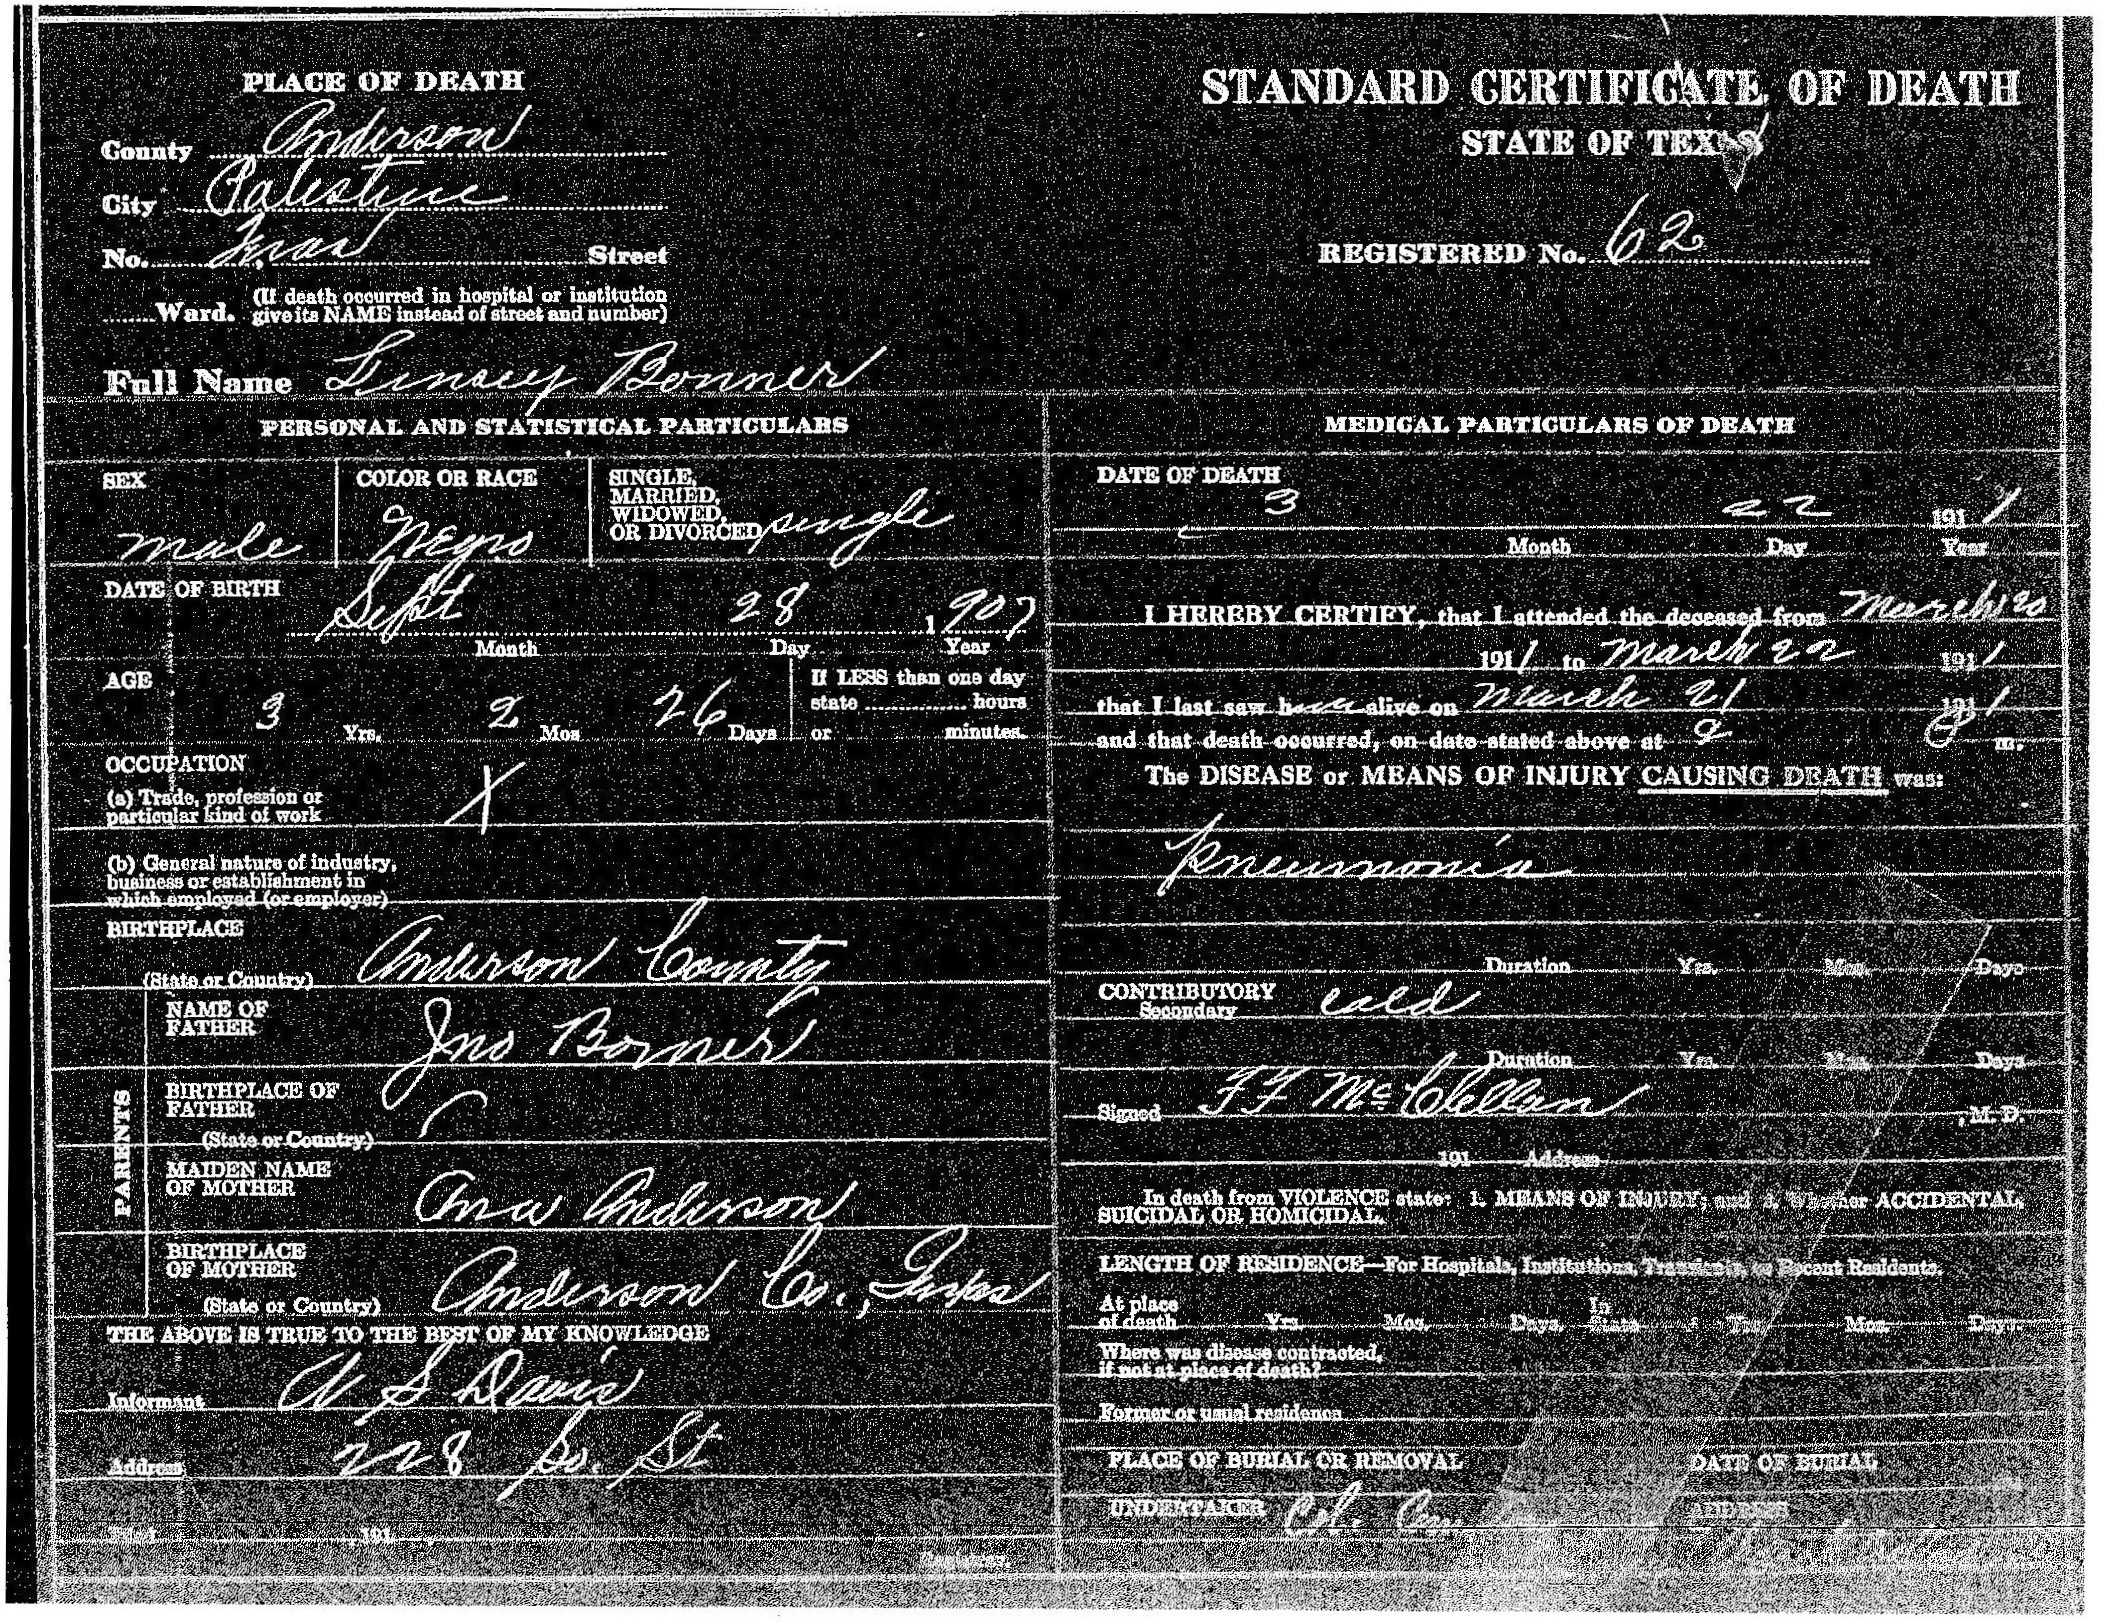 PLACE OF DEATH
County Anderson
City Palestine
No. Street
Ward. (If death occurred in hospital or institution
give its NAME instead of street and number)
Full Name Linsey Bonner
STANDARD CERTIFICATE OF DEATH
STATE OF TEXAS
REGISTERED No. 62
PERSONAL AND STATISTICAL PARTICULARS
SEX
male
COLOR OR RACE
Negro
SINGLE,
MARRIED,
WIDOWED,
OR DIVORCED single
DATE OF BIRTH
Sept 28 1907
Month Day Year
AGE
3 Yrs. 2 Mos 26 Days
If LESS than one day
state hours
or minutes.
OCCUPATION
(a) Trade, profession or
particular kind of work X
(b) General nature of industry,
business or establishment in
which employed (or employer)
BIRTHPLACE
(State or Country) Anderson County
PARENTS
NAME OF
FATHER Jno Bonner
BIRTHPLACE OF
FATHER
(State or Country)
MAIDEN NAME
OF MOTHER Ana Anderson
BIRTHPLACE
OF MOTHER
(State or Country) Anderson Co., Texas
THE ABOVE IS TRUE TO THE BEST OF MY KNOWLEDGE
Informant S Davis
Address 228 So. St
191
Registrar.
MEDICAL PARTICULARS OF DEATH
DATE OF DEATH
3 22 1911
Month Day Year
I HEREBY CERTIFY, that I attended the deceased from March 20
1911 to March 22 1911
that I last saw h alive on March 21 1911
and that death occurred, on date stated above at 9 m.
The DISEASE or MEANS OF INJURY CAUSING DEATH was:
Pneumonia
Duration Yrs. Mos. Days
CONTRIBUTORY
Secondary cald
Duration Yrs. Mos. Days
Signed F F McClellan , M. D.
191 Address
In death from VIOLENCE state: 1. MEANS OF INJURY; and 2. Whether ACCIDENTAL,
SUICIDAL OR HOMICIDAL.
LENGTH OF RESIDENCE—For Hospitals, Institutions, Transients, or Recent Residents.
At place
of death Yrs. Mos. Days. In
State Yrs. Mos. Days.
Where was disease contracted,
if not at place of death?
Former or usual residence
PLACE OF BURIAL OR REMOVAL
DATE OF BURIAL
UNDERTAKER Col.
ADDRESS